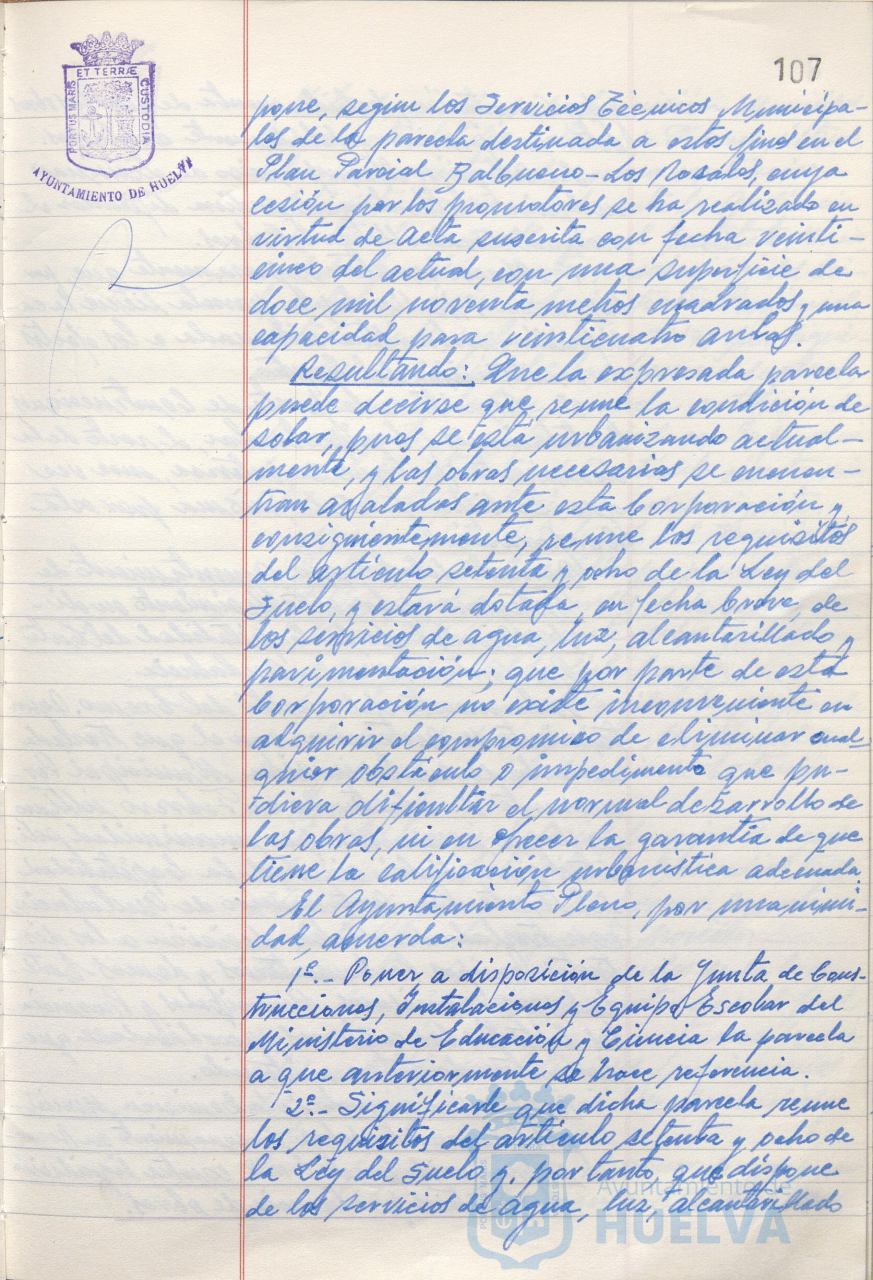 107
PORTUS MARIS
ET TERRÆ
CUSTODIA
AYUNTAMIENTO DE HUELVA
pone, según los Servicios Técnicos Municipa-
les de la parcela destinada a estos fines en el
Plan Parcial Balbueno-Los Rosales, cuya
cesión por los promotores se ha realizado en
virtud de Acta suscrita con fecha veinti-
cinco del actual, con una superficie de
doce mil noventa metros cuadrados y una
capacidad para veinticuatro aulas.
Resultando: Que la expresada parcela
puede decirse que reune la condición de
solar, pues se está urbanizando actual-
mente, y las obras necesarias se encuen-
tran avaladas ante esta Corporación y,
consiguientemente, reune los requisitos
del artículo setenta y ocho de la Ley del
Suelo, y estará dotada, en fecha breve, de
los servicios de agua, luz, alcantarillado y
pavimentación; que por parte de esta
Corporación no existe inconveniente en
adquirir el compromiso de eliminar cual-
quier obstáculo o impedimento que pu-
diera dificultar el normal desarrollo de
las obras, ni en ofrecer la garantía de que
tiene la calificación urbanística adecuada.
El Ayuntamiento Pleno, por unanimi-
dad, acuerda:
1º.- Poner a disposición de la Junta de Cons-
trucciones, Instalaciones y Equipo Escolar del
Ministerio de Educación y Ciencia la parcela
a que anteriormente se hace referencia.
2º.- Significarle que dicha parcela reune
los requisitos del artículo setenta y ocho de
la Ley del Suelo y, por tanto, que dispone
de los servicios de agua, luz, alcantarillado
Ayuntamiento de
HUELVA